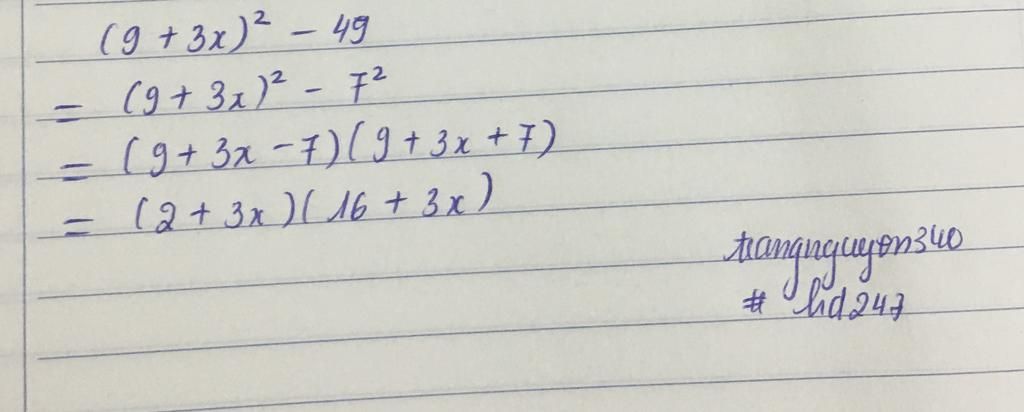 (9 + 3x)² - 49
= (9 + 3x)² - 7²
= (9 + 3x - 7)(9 + 3x + 7)
= (2 + 3x)(16 + 3x)
trangnguyen340
# hd247